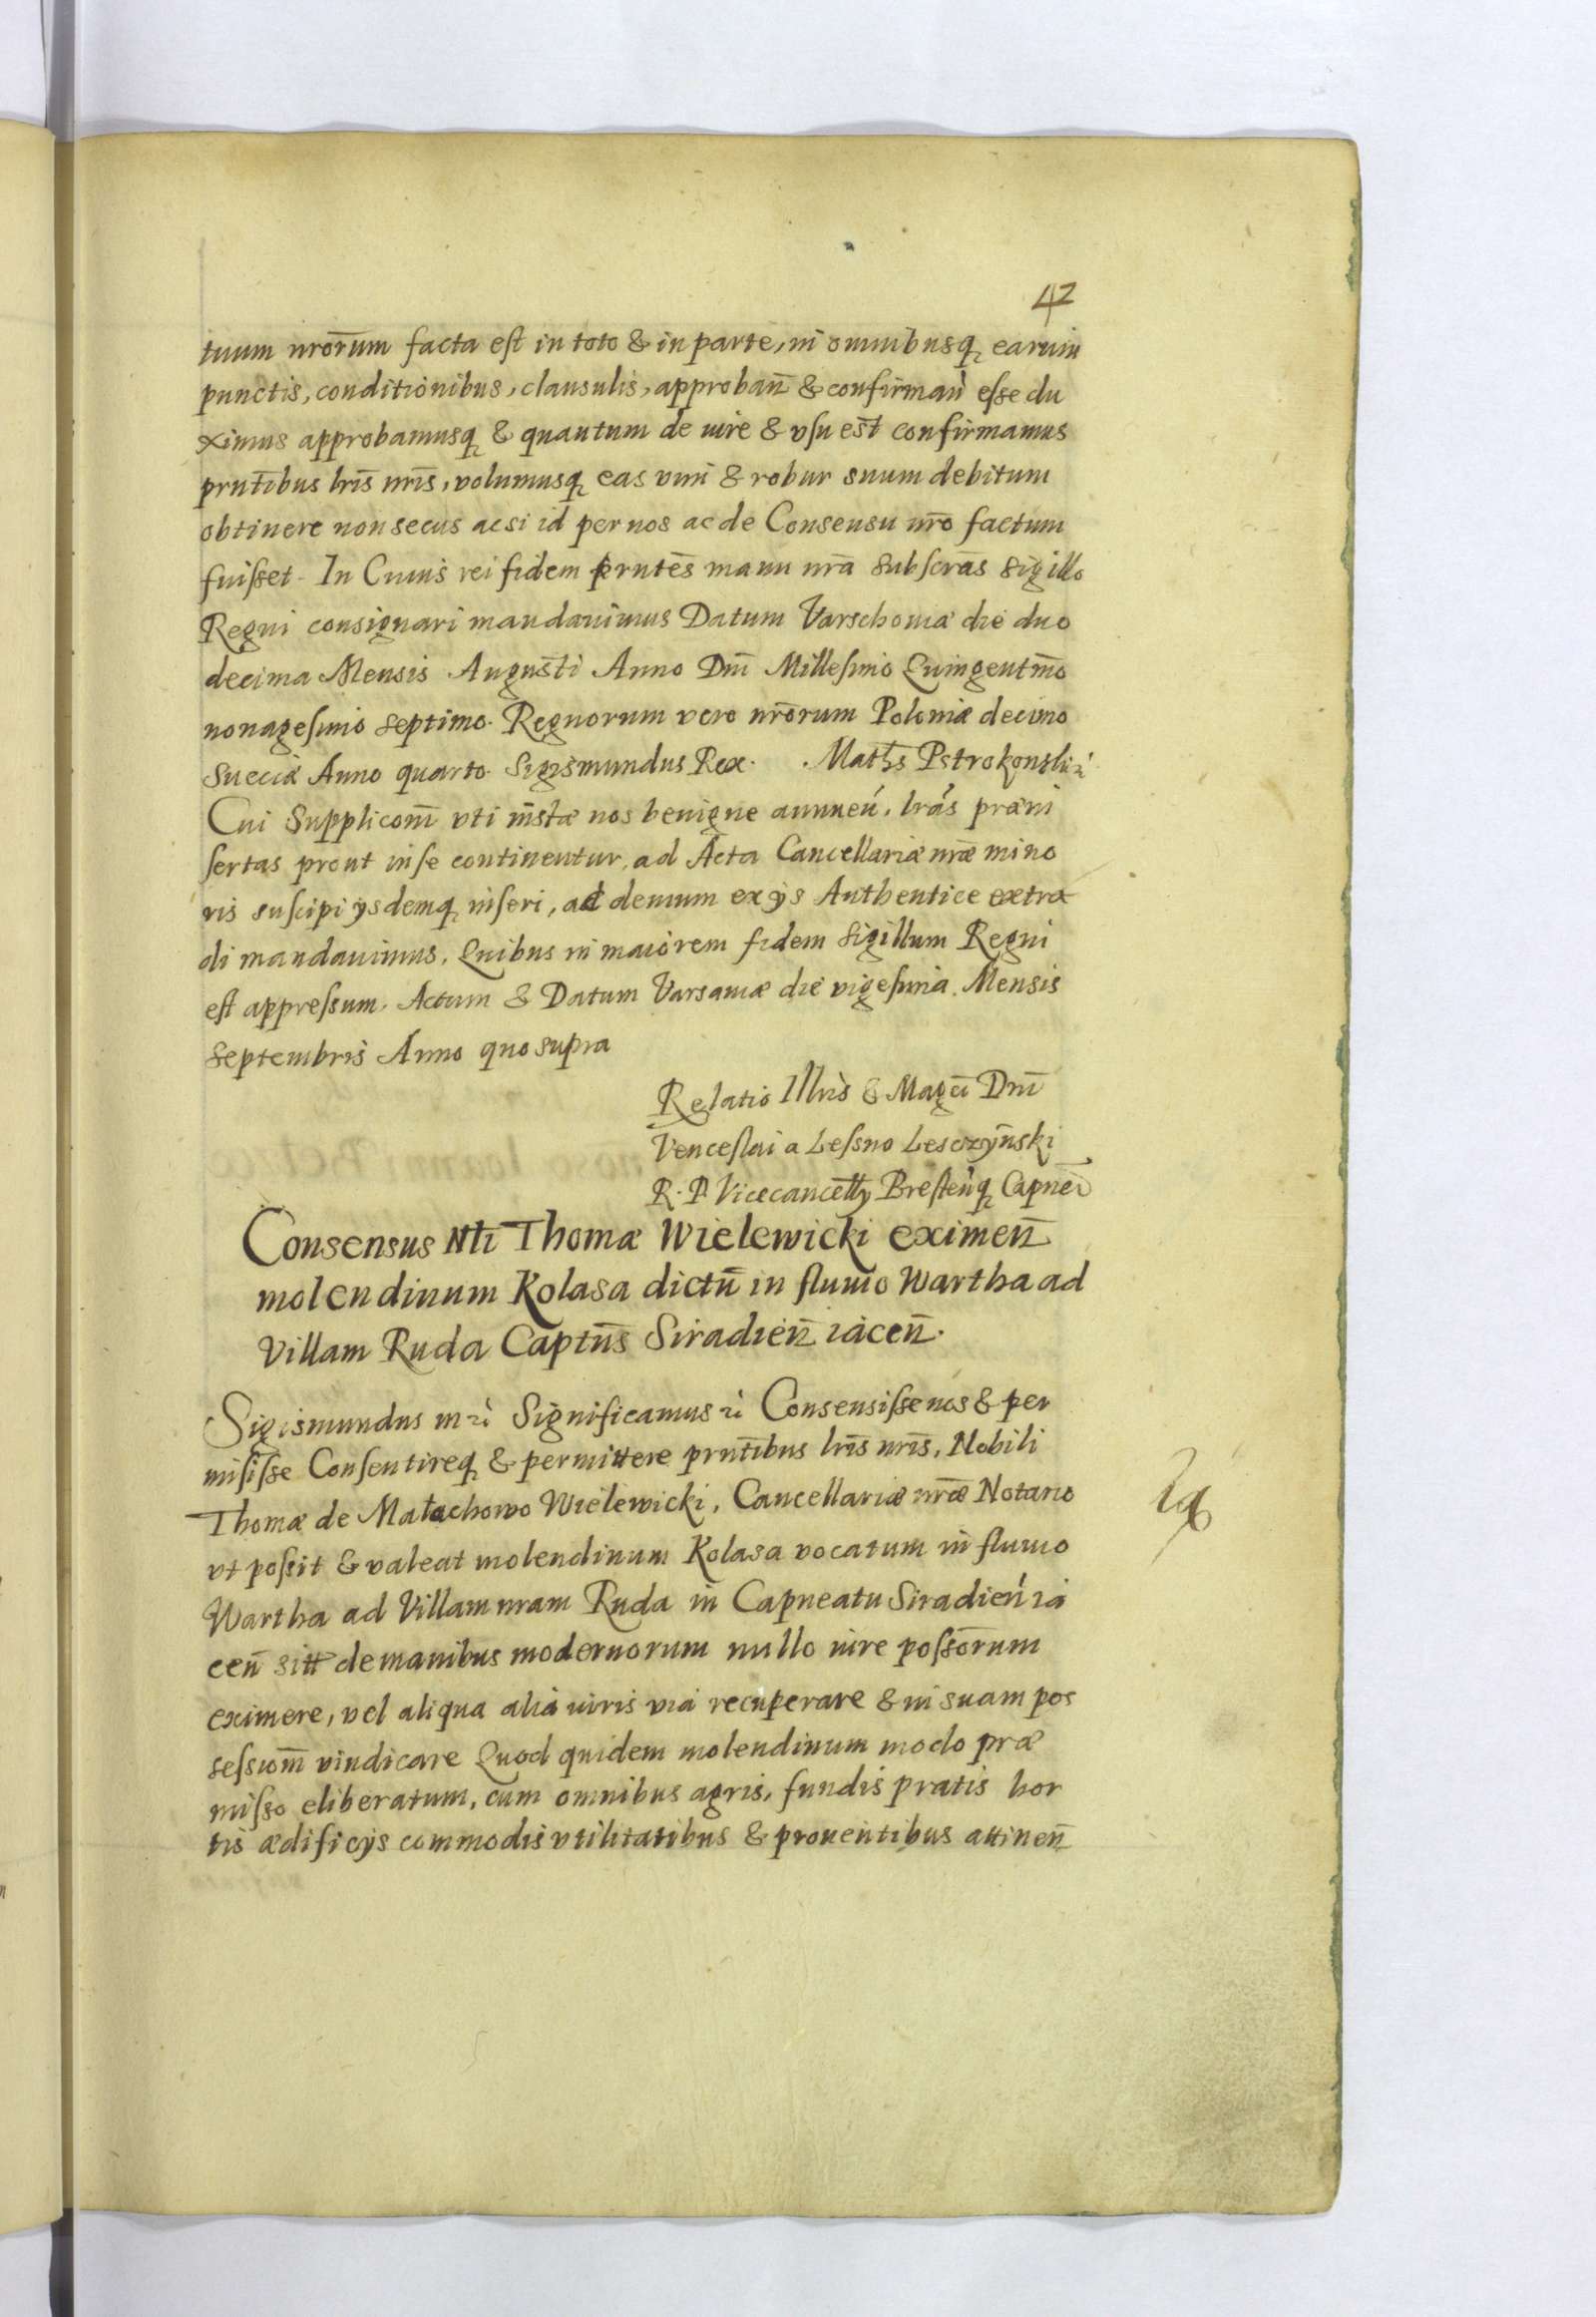 42
tuum nrōrum facta est in toto & in parte, in omnibusq earum
punctis, conditionibus, clausulis, approban̄ & confirman̄ esse du
ximus approbamusq & quantum de iure & vsu est confirmamus
prntibus lris nris, volumusq eas vim & robur suum debitum
obtinere non secus ac si id per nos ac de Consensu nro factum
fuisset. In Cuius rei fidem prntes manu nra subscras sigillo
Regni consignari mandauimus Datum Varschouiæ die duo
decima Mensis Augusti Anno Dni Millesimo Quingentmo
nonagesimo septimo. Regnorum vero nrorum Poloniæ decimo
Sueciæ Anno quarto. Sigismundus Rex. Maths Pstrokonski
Cui Supplicom̄ vti iustæ nos benigne annuen̄, lras præin
sertas prout in se continentur, ad Acta Cancellariæ nræ mino
ris suscipi ysdemq inseri, ac demum ex ijs Authentice extra
di mandauimus. Quibus in maiorem fidem sigillum Regni
est appressum. Actum & Datum Varsauiæ die vigesima Mensis
Septembris Anno quo supra
Relatio Illris & Magci Dni
Venceslai a Lessno Lesczynski
R. P. Vicecancellӯ Bresten̄q Capnei
Consensus Nli Thomæ Wielewicki eximen̄
molendinum Kolasa dictū in fluuio Wartha ad
Villam Ruda Captūs Siradien̄ iacen̄.
Sigismundus Significamus Consensisse nos & per
misisse Consentireq & permittere prntibus lris nris, Nobili
Thomæ de Małachowo Wielewicki, Cancellariæ nræ Notario
vt possit & valeat molendinum Kolasa vocatum in fluuio
Wartha ad Villam nram Ruda in Capneatu Siradien̄ ia
cen̄ sitt de manibus modernorum nullo iure possorum
eximere, vel aliqua alia iuris via recuperare & in suam pos
sessiom̄ vindicare Quod quidem molendinum modo præ
misso eliberatum, cum omnibus agris, fundis pratis hor
tis ædificijs commodis vtilitatibus & prouentibus attinen̄